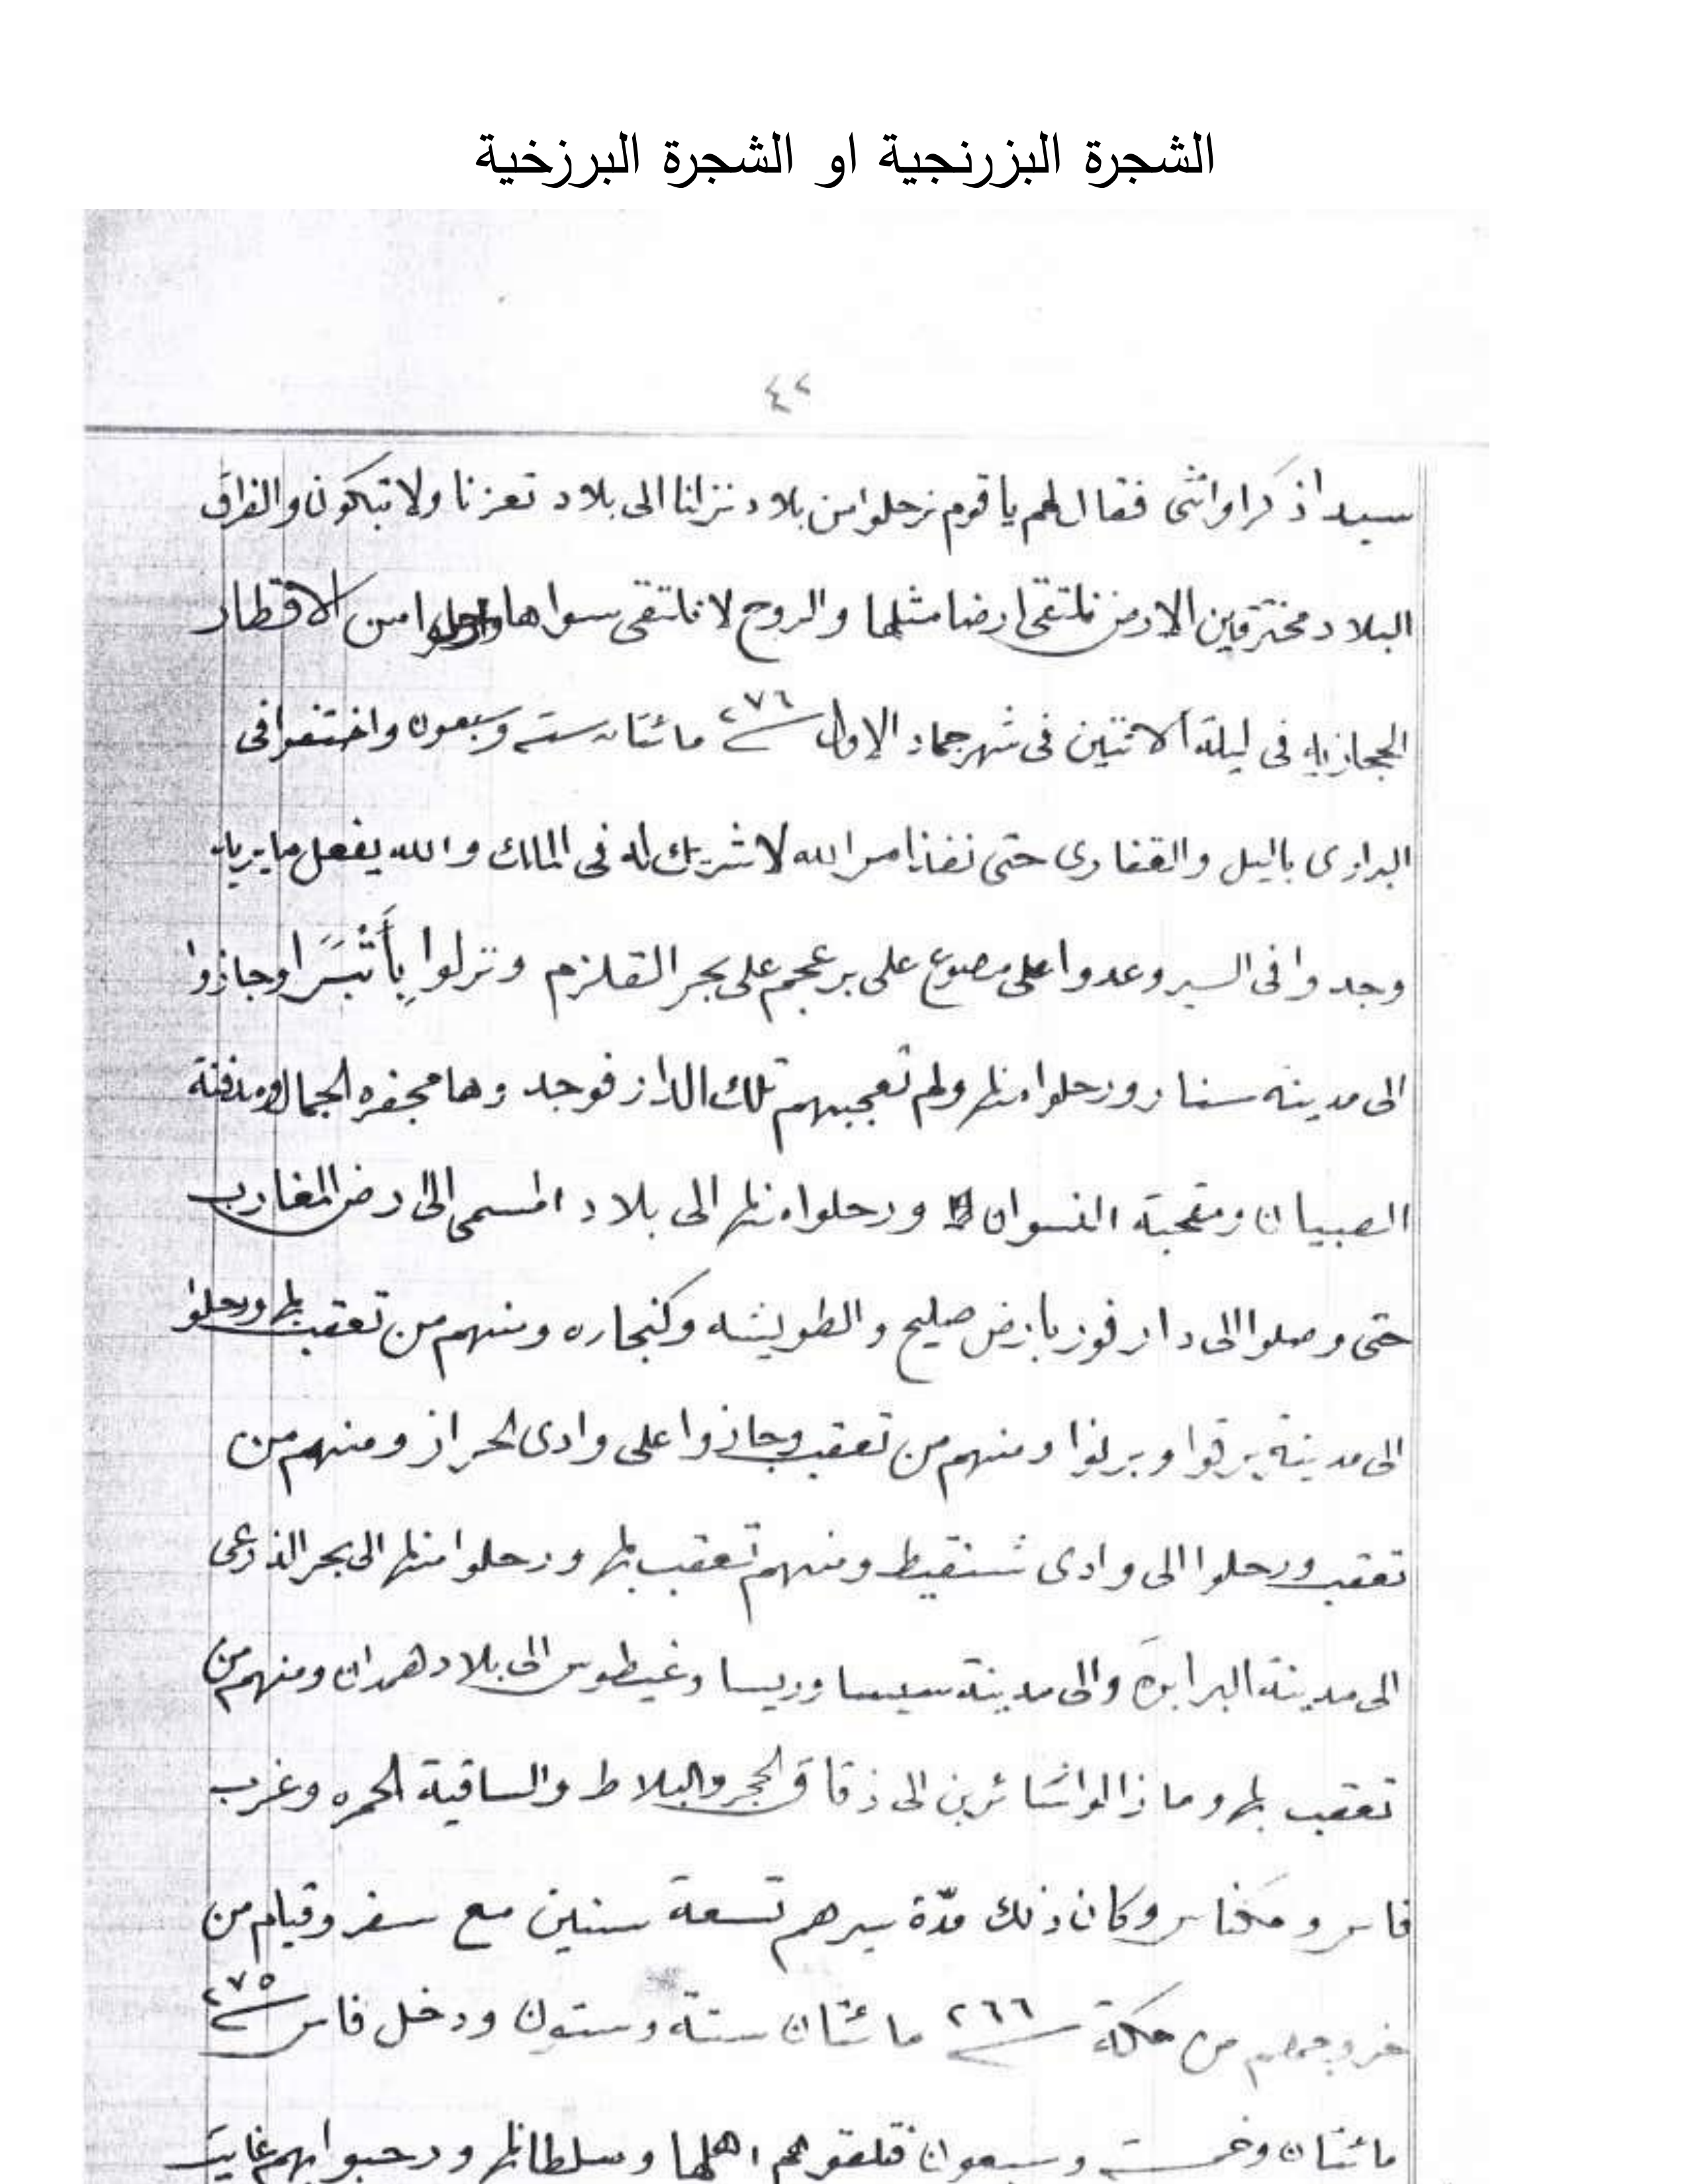 الشجرة البزرنجية او الشجرة البرزخية
٤٢
سيدا ذكرا وانثى فقال لهم يا قوم نرحلوا من بلاد تزلنا الى بلاد تعزنا ولا تبكون والفراق
البلاد مخترقين الارض نلتقى ارضا مثلها والروح لا نلتقى سواها من الاقطار
الحجازيه فى ليلة الاثنين فى شهر جماد الاول ٢٧٦ مائتان سته وسبعون واختفوا فى
البرارى باليل والقفارى حتى نفذ امر الله لا شريك له فى الملك والله يفعل ما يريد
وجدوا فى السير وعدوا على مصوع على بر عجم على بحر القلزم ونزلوا بأتبرا وجازوا
الى مدينة سنار ورحلوا منها ولم تعجبهم تلك الدار فوجدوها محفره الجمال ومدفنة
الصبيان ومقحبة النسوان ورحلوا منها الى بلاد المسمى الى رض المغارب
حتى وصلوا الى دارفور بارض صليح والطويشه وكنجاره ومنهم من تعقب بها ورحلوا
الى مدينة برقوا وبرنوا ومنهم من تعقب وجازوا على وادى الحراز ومنهم من
تعقب ورحلوا الى وادى شنقيط ومنهم تعقب بها ورحلوا منها الى بحر الذرعى
الى مدينة البرابرة والى مدينة سيسا وريسا وغيطوس الى بلاد همدان ومنهم من
تعقب بها وما زالوا سائرين الى زقاق الحجر والبلاط والساقية الحمره وغرب
فاس ومكناس وكان ذلك مدّة سيرهم تسعة سنين مع سفر وقيام من
خروجهم من مكة ٢٦٦ مائتان ستة وستون ودخل فاس ٢٧٥
مائتان وخمسة وسبعون فلقوهم اهلها وسلطانها ورحبوا بهم غاية